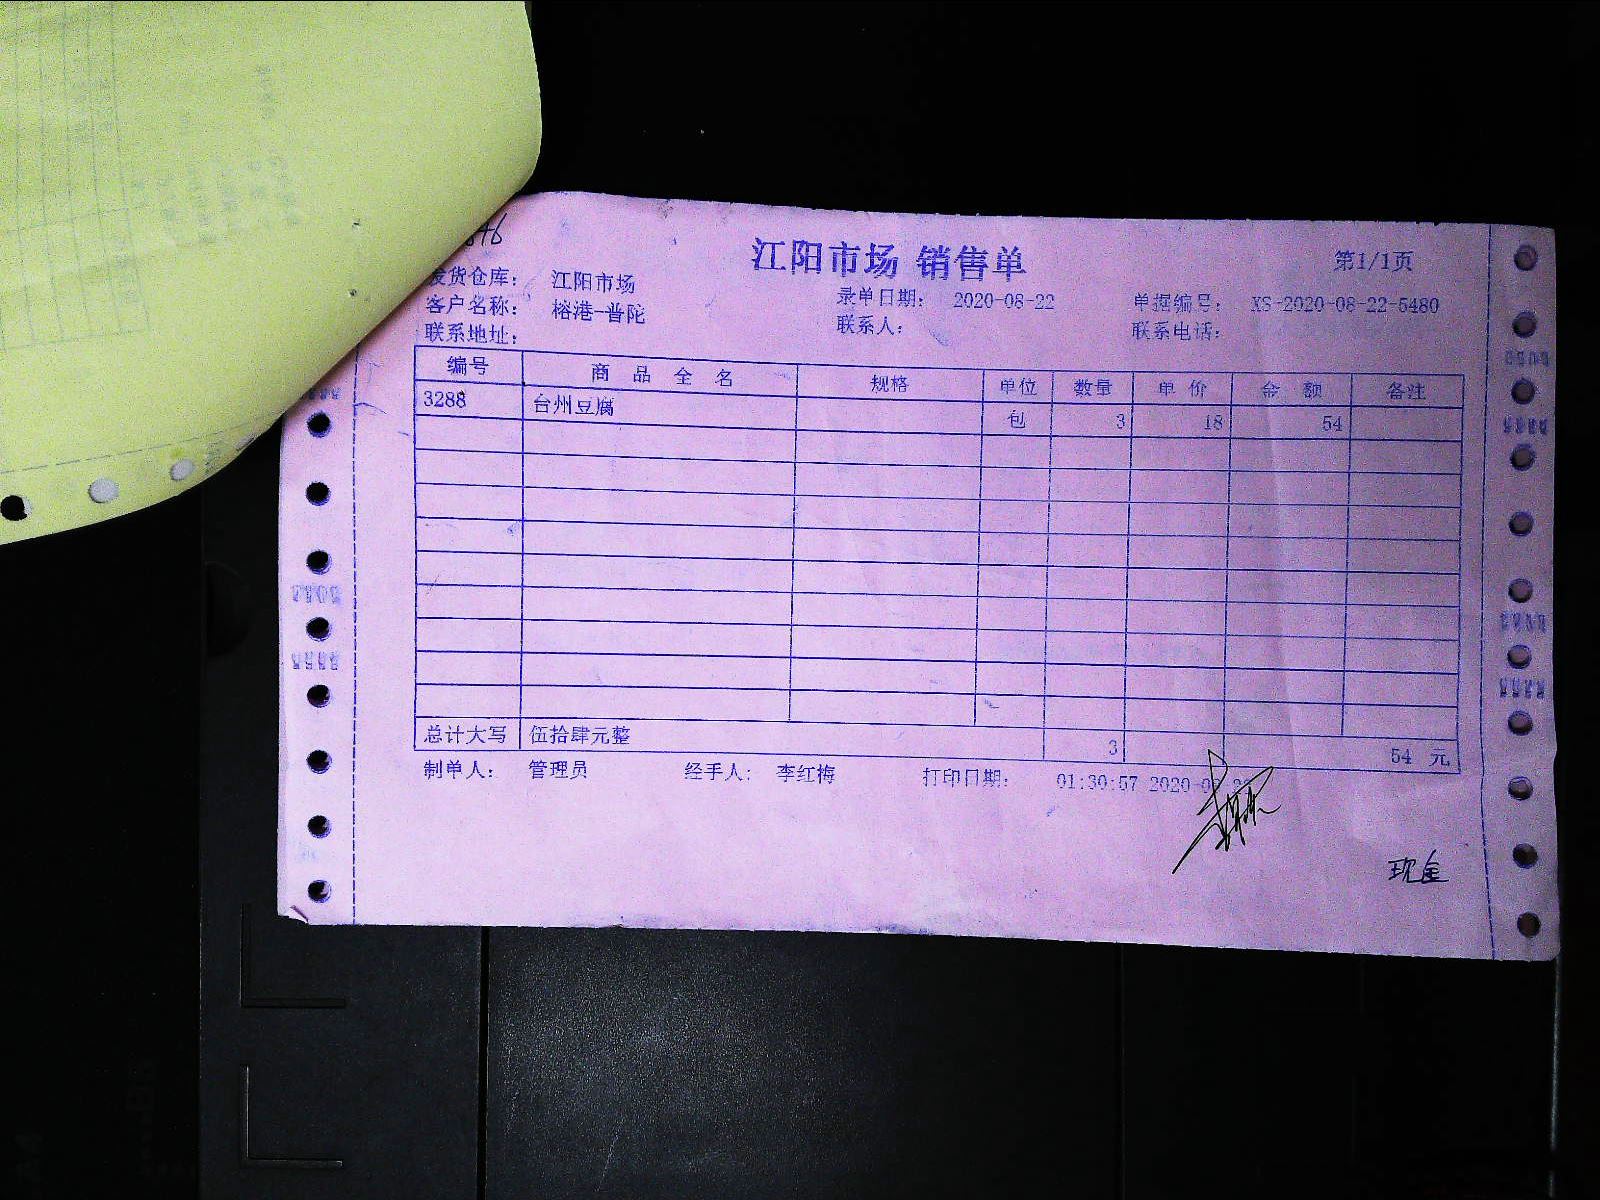 江阳市场 销售单
第1/1页
发货仓库: 江阳市场
客户名称: 榕港-普陀
录单日期: 2020-08-22
单据编号: XS-2020-08-22-5480
联系地址:
联系人:
联系电话:
编号 商品全名 规格 单位 数量 单价 金额 备注
3288 台州豆腐 包 3 18 54
总计大写 伍拾肆元整 3 54 元
制单人: 管理员 经手人: 李红梅 打印日期: 01:30:57 2020-0
现金